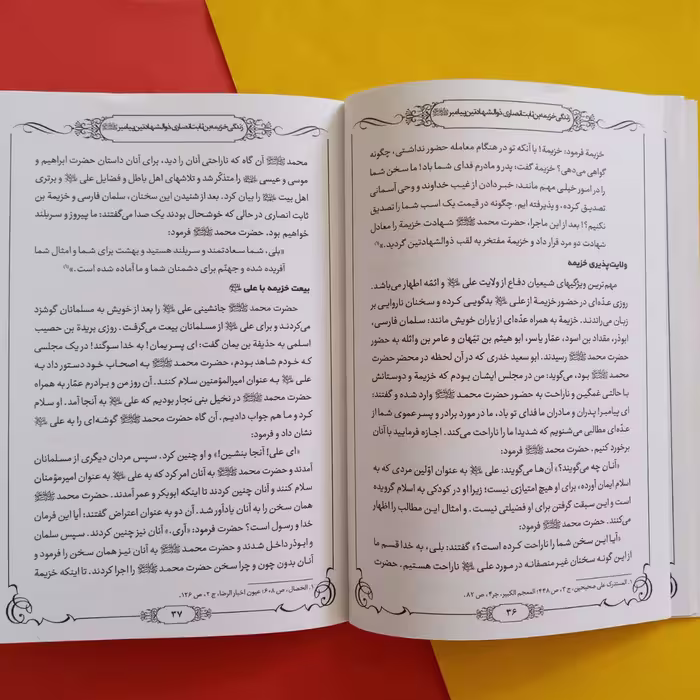 زندگی خزیمه بن ثابت انصاری، ذوالشهادتین پیامبر ﷺ
خزیمة فرمود: خزیمة! با آنکه تو در هنگام معامله حضور نداشتی، چگونه
گواهی می‌دهی؟ خزیمة گفت: پدر و مادرم فدای شما باد! ما سخن شما
را در امور خیلی مهم مانند: خبر دادن از غیب خداوند و وحی آسمانی
تصدیق کرده، و پذیرفته ایم. چگونه در قیمت یک اسب شما را تصدیق
نکنیم؟! بعد از این ماجرا، حضرت محمد ﷺ شهادت خزیمة را معادل
شهادت دو مرد قرار داد و خزیمة مفتخر به لقب ذوالشهادتین گردید.»(۱)
ولایت‌پذیری خزیمه
مهم‌ترین ویژگیهای شیعیان دفاع از ولایت علی و ائمّه اطهار می‌باشد.
روزی عدّه‌ای در حضور خزیمة از علی بدگویی کرده و سخنان ناروایی بر
زبان می‌راندند. خزیمة به همراه عدّه‌ای از یاران خویش مانند: سلمان فارسی،
ابوذر، مقداد بن اسود، عمّار یاسر، ابو هیثم بن تیّهان و عامر بن واثله به حضور
حضرت محمد ﷺ رسیدند. ابو سعید خدری که در آن لحظه در محضر حضرت
محمد ﷺ بود، می‌گوید: من در مجلس ایشان بودم که خزیمة و دوستانش
با حالتی غمگین و ناراحت به حضور حضرت محمد ﷺ وارد شده و گفتند:
ای پیامبر! پدران و مادران ما فدای تو باد، ما در مورد برادر و پسر عموی شما از
عدّه‌ای مطالبی می‌شنویم که شدیدا ما را ناراحت می‌کند. اجازه فرمایید با آنان
برخورد کنیم. حضرت محمد ﷺ فرمود:
«آنان چه می‌گویند؟» آن‌ها می‌گویند: علی به عنوان اوّلین مردی که به
اسلام ایمان آورده، برای او هیچ امتیازی نیست؛ زیرا او در کودکی به اسلام گرویده
است و این سبقت گرفتن برای او فضیلتی نیست. و امثال این مطالب را اظهار
می‌کنند. حضرت محمد ﷺ فرمود:
«آیا این سخن شما را ناراحت کرده است؟» گفتند: بلی، به خدا قسم ما
از این گونه سخنان غیر منصفانه در مورد علی ناراحت هستیم. حضرت
۱. المستدرک علی صحیحین، ج ۲، ص ۴۴۸؛ المعجم الکبیر، ج۴، ص ۸۲.
۳۶
زندگی خزیمه بن ثابت انصاری، ذوالشهادتین پیامبر ﷺ
محمد ﷺ آن گاه که ناراحتی آنان را دید، برای آنان داستان حضرت ابراهیم و
موسی و عیسی را متذکّر شد و تلاشهای اهل باطل و فضایل علی و برتری
اهل بیت را بیان کرد. بعد از شنیدن این سخنان، سلمان فارسی و خزیمة بن
ثابت انصاری در حالی که خوشحال بودند یک صدا می‌گفتند: ما پیروز و سربلند
خواهیم بود، حضرت محمد ﷺ فرمود:
«بلی، شما سعادتمند و سربلند هستید و بهشت برای شما و امثال شما
آفریده شده و جهنّم برای دشمنان شما و ما آماده شده است.»(۱)
بیعت خزیمه با علی
حضرت محمد ﷺ جانشینی علی را بعد از خویش به مسلمانان گوشزد
می‌کردند و برای علی از مسلمانان بیعت می‌گرفت. روزی بریدة بن حصیب
اسلمی به حذیفة بن یمان گفت: ای پسر یمان! به خدا سوگند! در یک مجلسی
که خودم شاهد بودم، حضرت محمد ﷺ به اصحاب خود دستور داد به
علی به عنوان امیرالمؤمنین سلام کنند. آن روز من و برادرم عمّار به همراه
حضرت محمد ﷺ در نخیل بنی نجار بودیم که علی به آنجا آمد. او سلام
کرد و ما هم جواب دادیم. آن گاه حضرت محمد ﷺ گوشه‌ای را به علی
نشان داد و فرمود:
«ای علی! آنجا بنشین!» و او چنین کرد. سپس مردان دیگری از مسلمانان
آمدند و حضرت محمد ﷺ به آنان امر کرد که به علی به عنوان امیرمؤمنان
سلام کنند و آنان چنین کردند تا اینکه ابوبکر و عمر آمدند. حضرت محمد ﷺ
همان سخن را به آنان یادآور شد. آن دو به عنوان اعتراض گفتند: آیا این فرمان
خدا و رسول است؟ حضرت فرمود: «آری.» آنان نیز چنین کردند. سپس سلمان
و ابوذر داخل شدند و حضرت محمد ﷺ به آنان نیز همان سخن را فرمود و
آنان بدون چون و چرا سخن حضرت محمد ﷺ را اجرا کردند. تا اینکه خزیمة
۱. الخصال، ص ۶۰۸؛ عیون اخبار الرضا، ج ۲، ص ۱۲۶.
۳۷